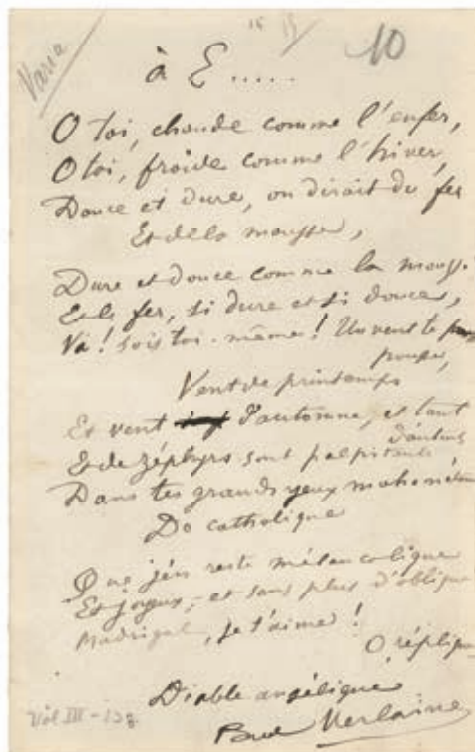 Varia
10
à E.....
O toi, chaude comme l'enfer,
O toi, froide comme l'hiver,
Douce et dure, on dirait du fer
Et de la mousse,
Dure et douce comme la mousse
Et le fer, si dure et si douce,
Va! sois toi-même! Un vent te
pousse,
Vent de printemps
Et vent d'automne, et tant
d'autres
Et de zéphyrs sont palpitants
Dans tes grands yeux
De catholique
Que j'en reste mélancolique
Et joyeux, - et sans plus d'oblique
Madrigal, je t'aime!
O réplique
Diable angélique
Paul Verlaine
Vol III - 138